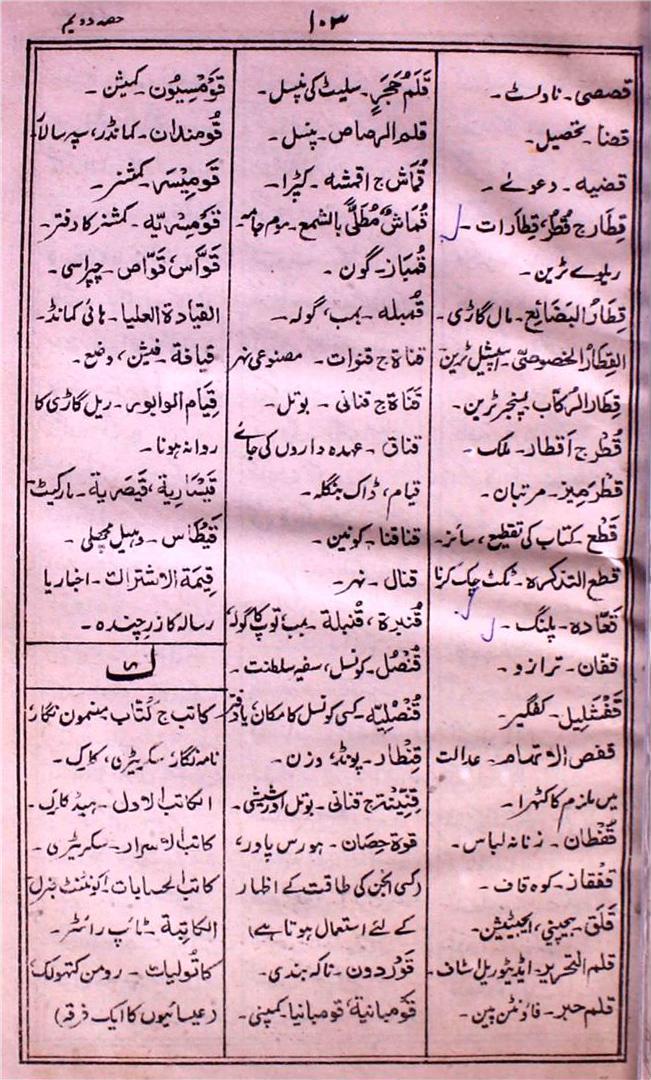 حصہ دویم
۱۰۳
قصصی۔ ناولسٹ۔
قضا۔ تحصیل۔
قضیہ۔ دعوےٰ۔
قِطَار ج قُطُر، قِطَارَات۔
ریلوے ٹرین۔
قِطَارُ البَضَائِع۔ مال گاڑی۔
القِطَارُ الخصوصیّ۔ اسپیشل ٹرین
قِطَارُ الرُکّاب۔ پسنجر ٹرین۔
قُطْر ج اَقطار۔ ملک۔
قَطْرَمِیز۔ مرتبان۔
قَطْع۔ کتاب کی تقطیع، سائز۔
قطع التذکرۃ۔ ٹکٹ چک کرنا
قَعَّادہ۔ پلنگ۔
قفّان۔ ترازو۔
قَفْشَلِیل۔ کفگیر۔
قفص الاتہام۔ عدالت
میں ملزم کا کٹہرا۔
قُفْطَان۔ زنانہ لباس۔
قَفْقاز۔ کوہ قاف۔
قَلَق۔ بےچینی، ایجیٹیشن۔
قلم التحریر۔ ایڈیٹوریل اسٹاف۔
قلم حبر۔ فاؤنٹن پین۔
قَلَمُ حَجَرٍ۔ سلیٹ کی پنسل۔
قلم الرصاص۔ پنسل۔
قُمَاش ج اقمشہ۔ کپڑا۔
قُمَاشٌ مُطَلًّی بالشمع۔ موم جامہ۔
قُمبَاز۔ گون۔
قُمبلہ۔ بمب، گولہ۔
قناۃ ج قنوات۔ مصنوعی نہر
قَنَاۃ ج قنانی۔ بوتل۔
قناق۔ عہدہ داروں کی جائے
قیام، ڈاک بنگلہ۔
قناقنا۔ کونین۔
قنال۔ نہر۔
قُنبرۃ، قُنبلۃ۔ بمب، توپ کا گولہ،
قُنْصُل۔ کونسل، سفیر سلطنت۔
قُنْصُلِیّہ۔ کسی کونسل کا مکان یا دفتر
قِنْطَار۔ پونڈ، وزن۔
قِنِّیْنَۃ ج قنانی۔ بوتل اور شیشی۔
قوۃ حِصَان۔ ہورس پاور،
(کسی انجن کی طاقت کے اظہار
کے لئے استعمال ہوتا ہے)
قَوْرَدون۔ ناکہ بندی۔
قَوْمبانیۃ، قومبانیا۔ کمپنی۔
قَوْمْسِیُون۔ کمیشن۔
قُومَنْدَان۔ کمانڈر، سپہ سالار
قَوْمِیْسَر۔ کمشنر۔
قَوْمِسْرِیّہ۔ کمشنر کا دفتر۔
قَوَّاس، قَوَّاص۔ چپراسی۔
القیادۃ العلیا۔ ہائی کمانڈ۔
قیافۃ۔ فیشن، وضع۔
قِیَام الوابور۔ ریل گاڑی کا
روانہ ہونا۔
قَیْسَارِیۃ، قَیصَرِیۃ۔ مارکیٹ۔
قَیْطَاس۔ وہیل مچھلی۔
قِیمَۃ الاشتراک۔ اخبار یا
رسالہ کا زرِ چندہ۔
ک
کاتب ج کُتّاب۔ مضمون نگار،
نامہ نگار، سکریٹری، کلرک۔
الکاتب الاول۔ ہیڈ کلرک۔
کاتب الاسرار۔ سکریٹری۔
کاتب الحسابات۔ اکونٹنٹ جنرل
الکاتبۃ۔ ٹائپ رائٹر۔
کاثولیات۔ رومن کتھولک،
(عیسائیوں کا ایک فرقہ)